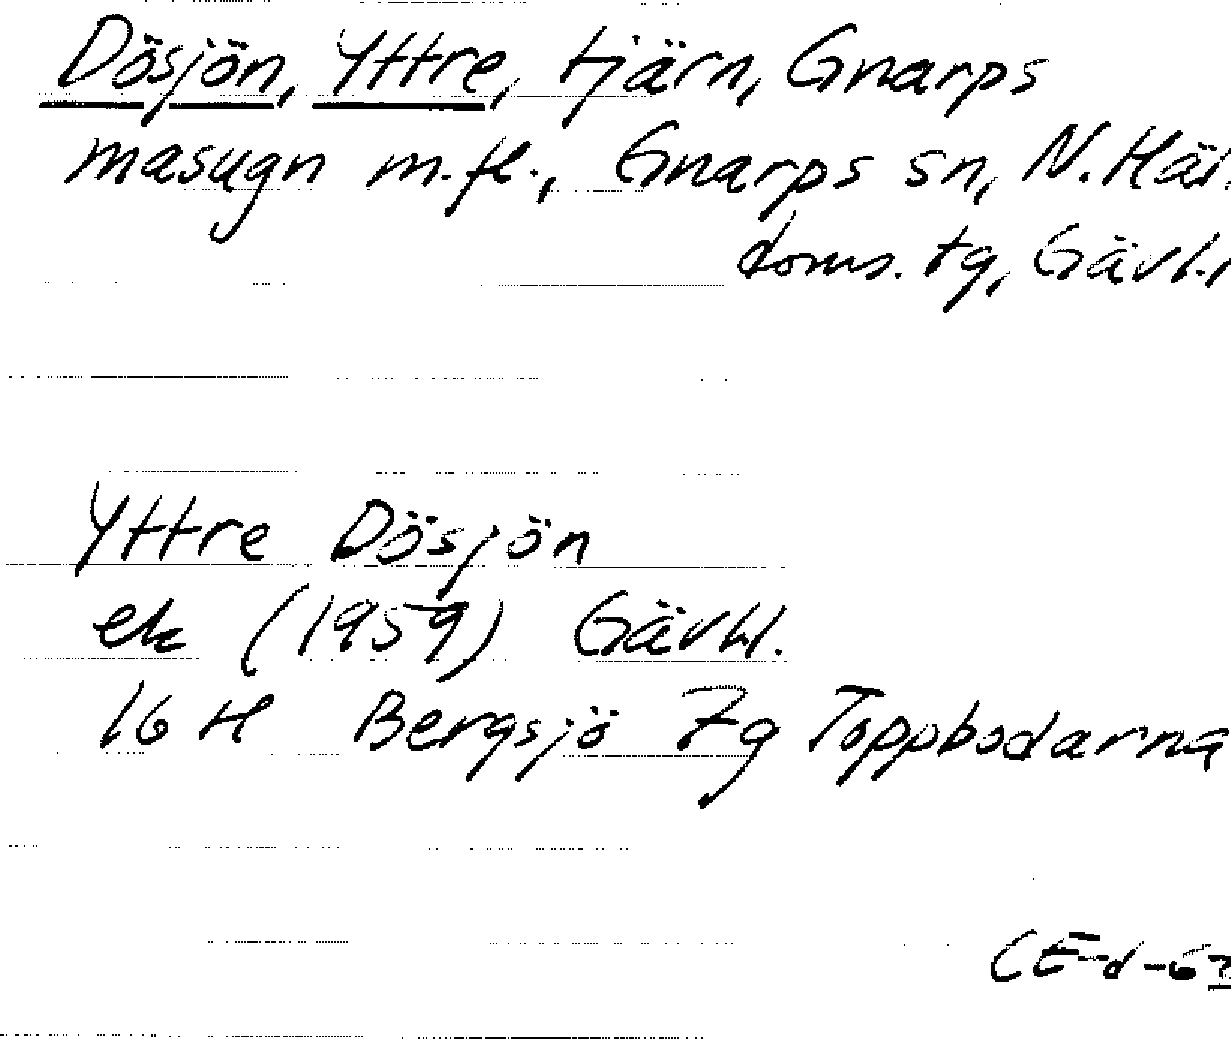 Dösjön, Yttre, tjärn, Gnarps
masugn m.fl., Gnarps sn, N. Häl.
doms. tg, Gävl.l
Yttre Dösjön
ek (1959) Gävl.l.
16 H Bergsjö 7g Toppbodarna
CE-d-63